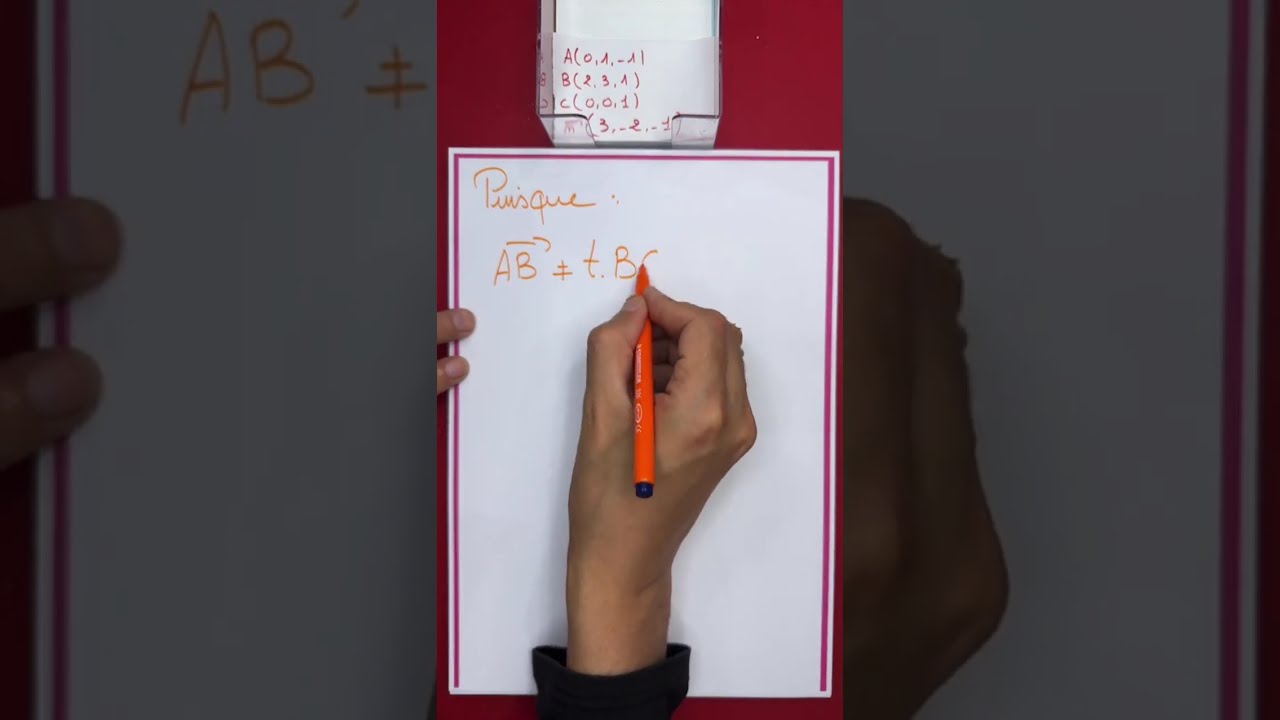 A(0,1,-1)
B(2,3,1)
C(0,0,1)
(3,-2,-1)
Puisque :
AB ≠ t. BC
AB ≠